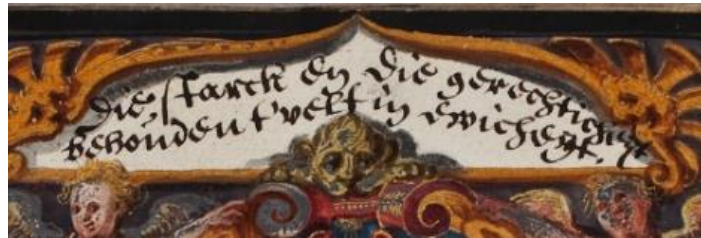 die starck en die gerechticheyt
behouden t'velt in ewicheyt